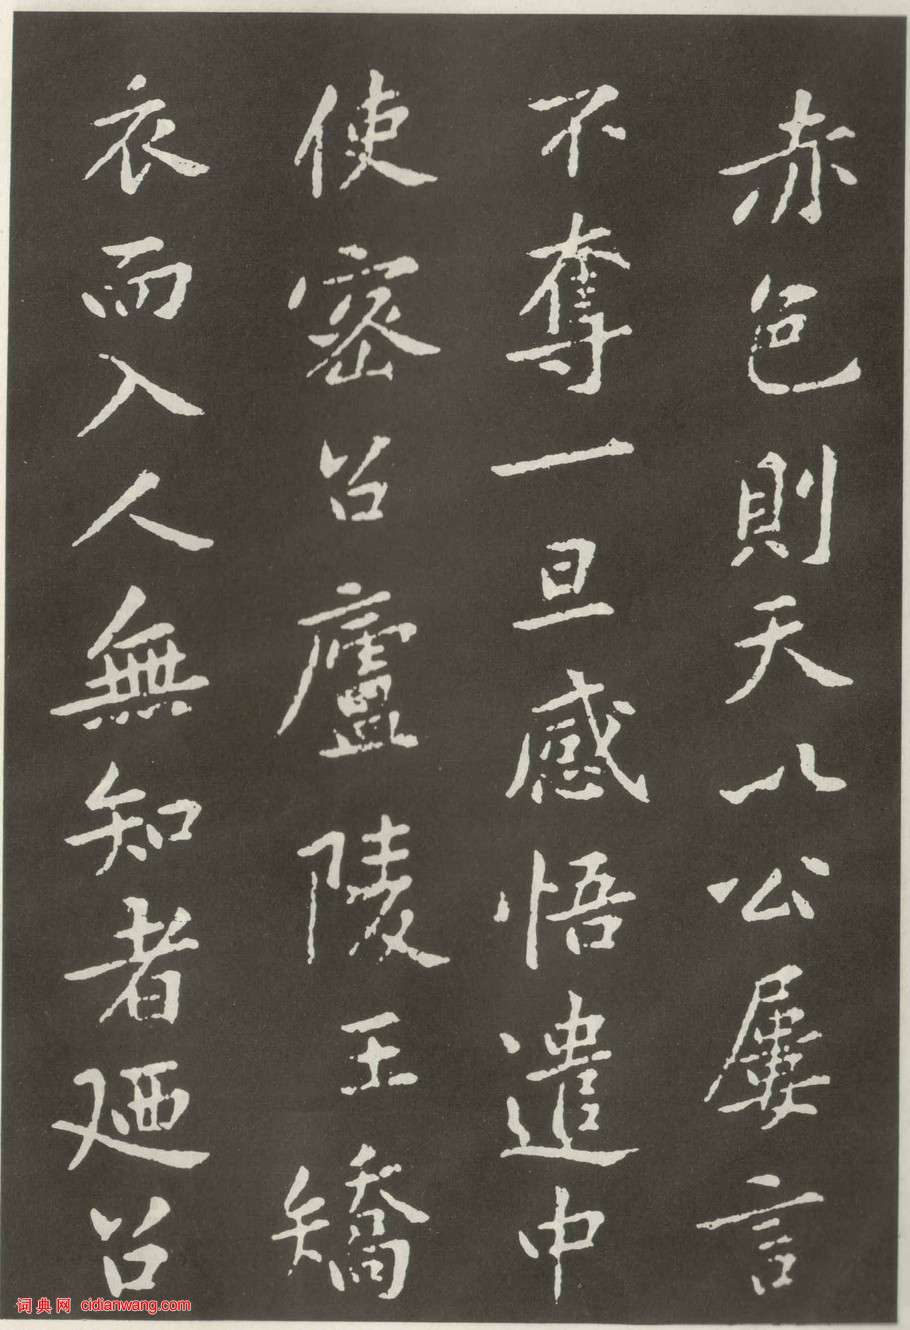 赤色則天以公屢言
不奪一旦感悟遣中
使密召廬陵王矯
衣而入人無知者廼召
词典网 cidianwang.com